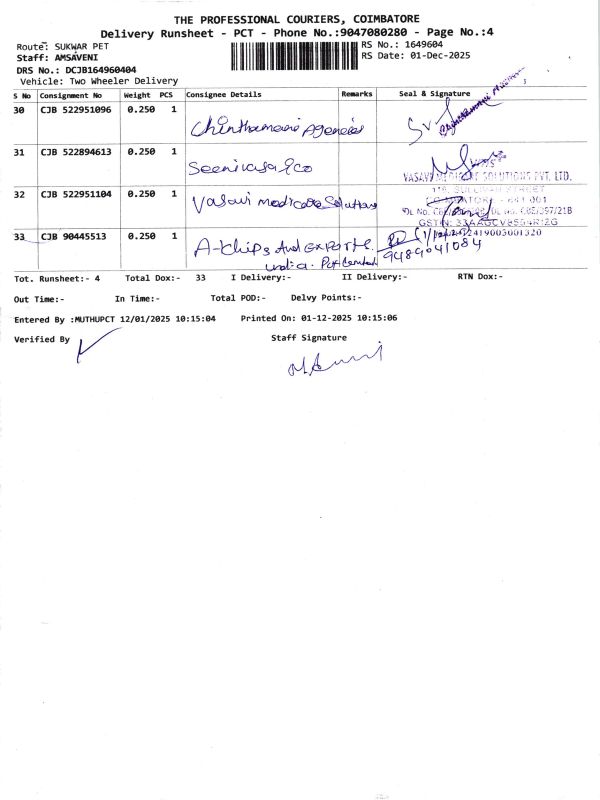 THE PROFESSIONAL COURIERS, COIMBATORE
Delivery Runsheet - PCT - Phone No.:9047080280 - Page No.:4
Route: SUKWAR PET
RS No.: 1649604
Staff: AMSAVENI
RS Date: 01-Dec-2025
DRS No.: DCJB164960404
Vehicle: Two Wheeler Delivery
S No Consignment No Weight PCS Consignee Details Remarks Seal & Signature
30 CJB 522951096 0.250 1
Chinthamani Agencies
31 CJB 522894613 0.250 1
Seenivasa & co
VASAVI MEDICARE SOLUTIONS PVT. LTD.
32 CJB 522951104 0.250 1
Vasavi medicare Solutions
GSTIN:
33 CJB 90445513 0.250 1
A-Chips And Exports
india. Pvt
9489041084
Tot. Runsheet:- 4 Total Dox:- 33 I Delivery:- II Delivery:- RTN Dox:-
Out Time:- In Time:- Total POD:- Delvy Points:-
Entered By :MUTHUPCT 12/01/2025 10:15:04 Printed On: 01-12-2025 10:15:06
Verified By Staff Signature